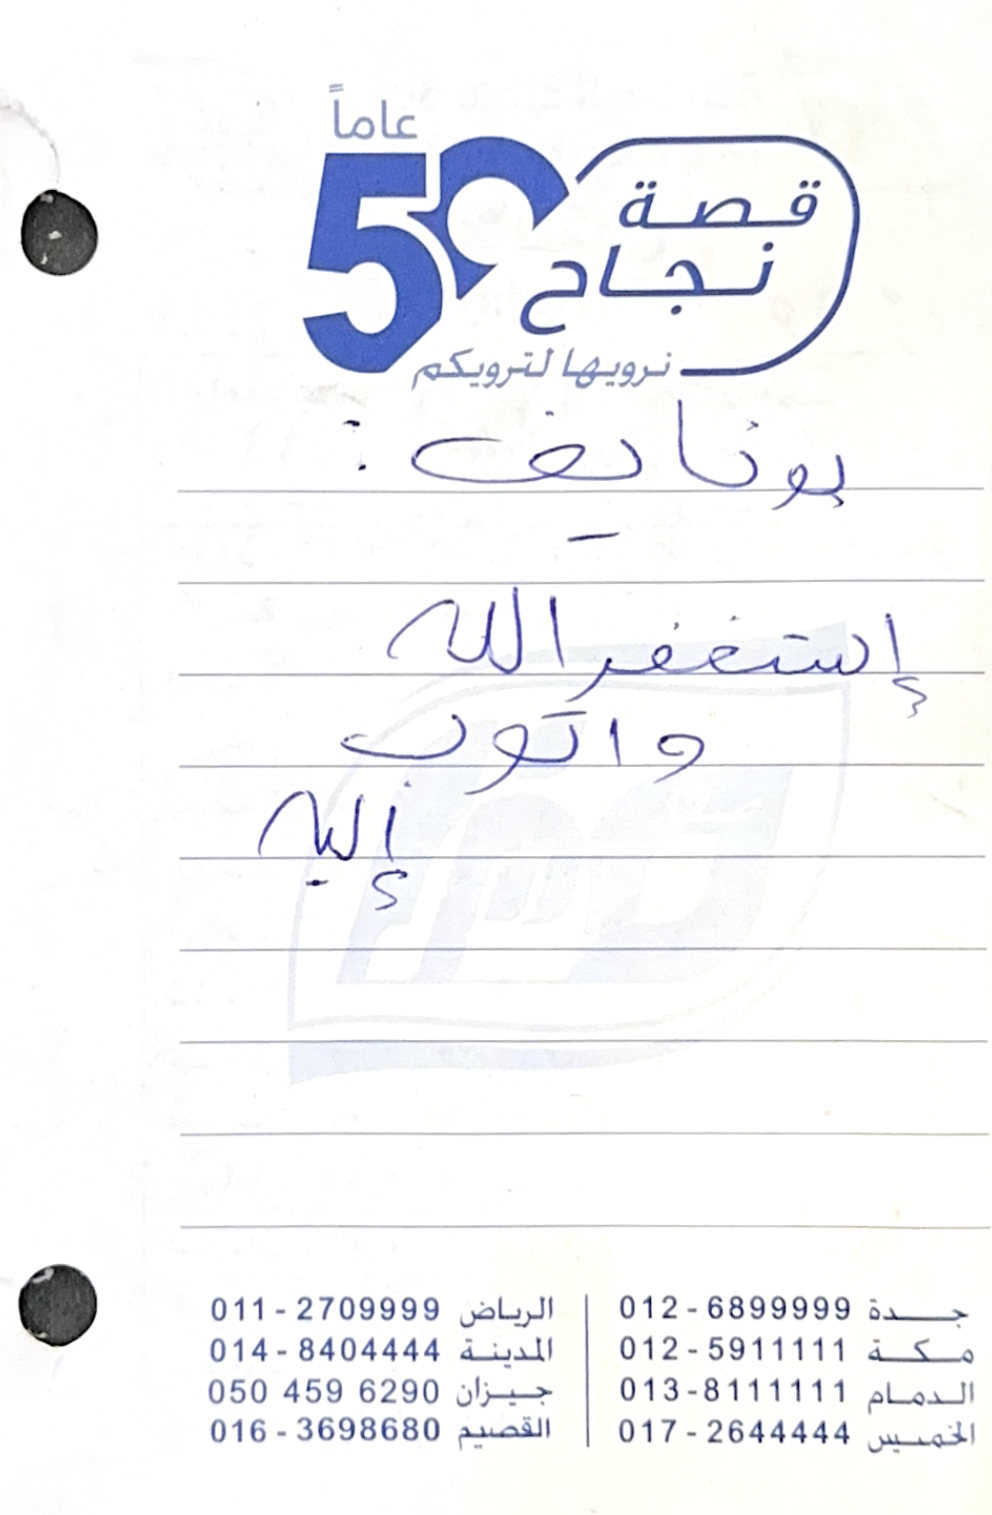 50 عاماً
قصة
نجاح
نرويها لترويكم
بونايف :
إستغفر الله
واتوب
إليه
جدة 012 - 6899999
مكة 012 - 5911111
الدمام 013-8111111
الخميس 017 - 2644444
الرياض 011 - 2709999
المدينة 014 - 8404444
جيزان 050 459 6290
القصيم 016 - 3698680